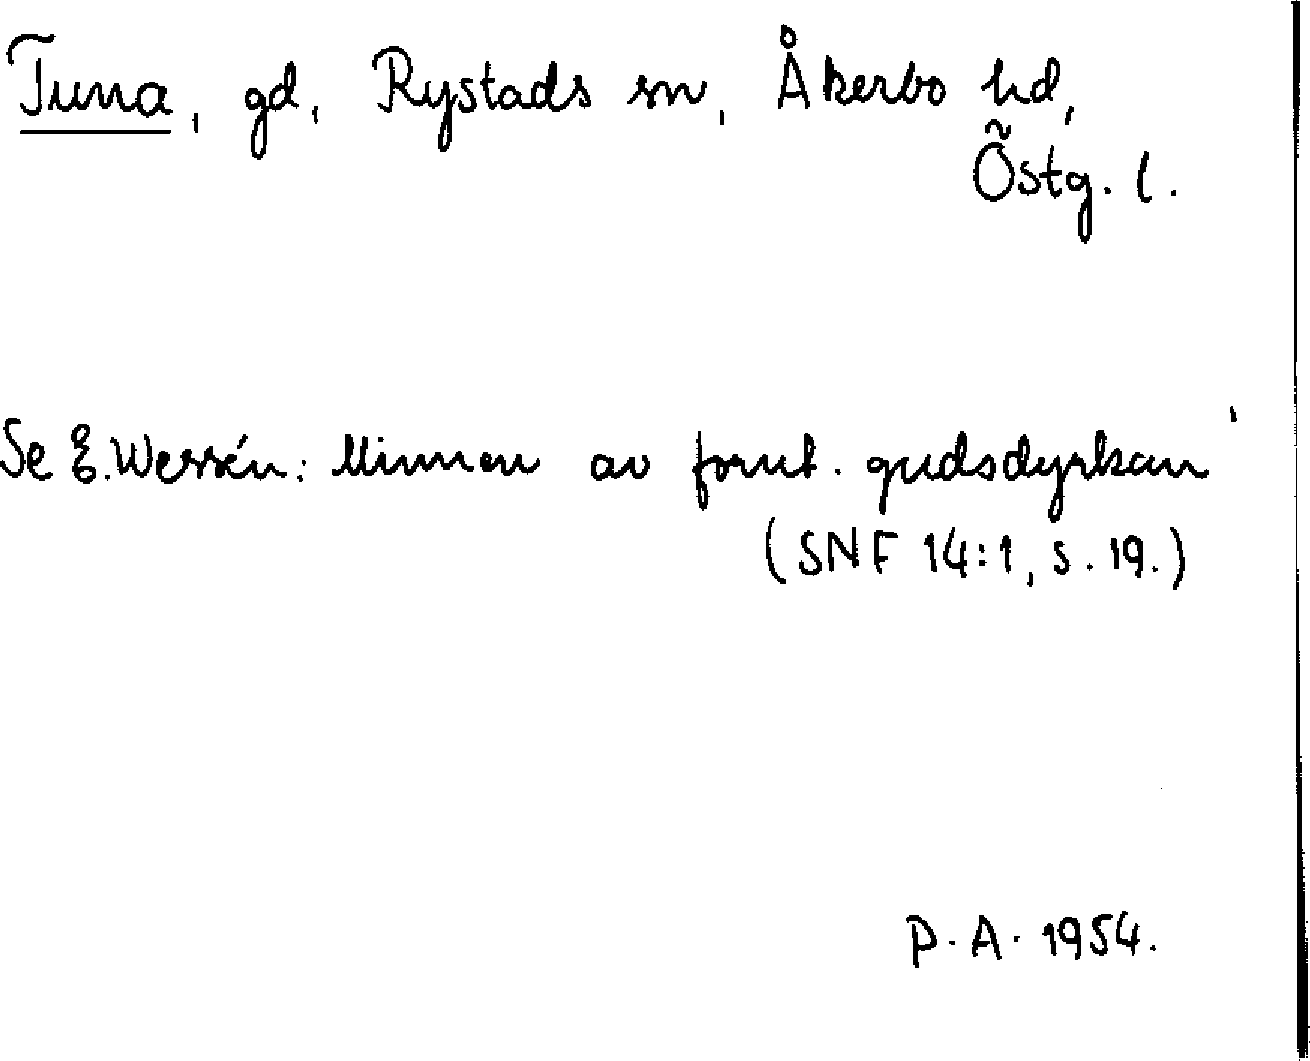 Tuna, gd, Rystads sn, Åkerbo hd,
Östg. l.
Se E. Wessén: Minnen av fornt. gudsdyrkan
(SNF 14:1, s. 19.)
P. A. 1954.